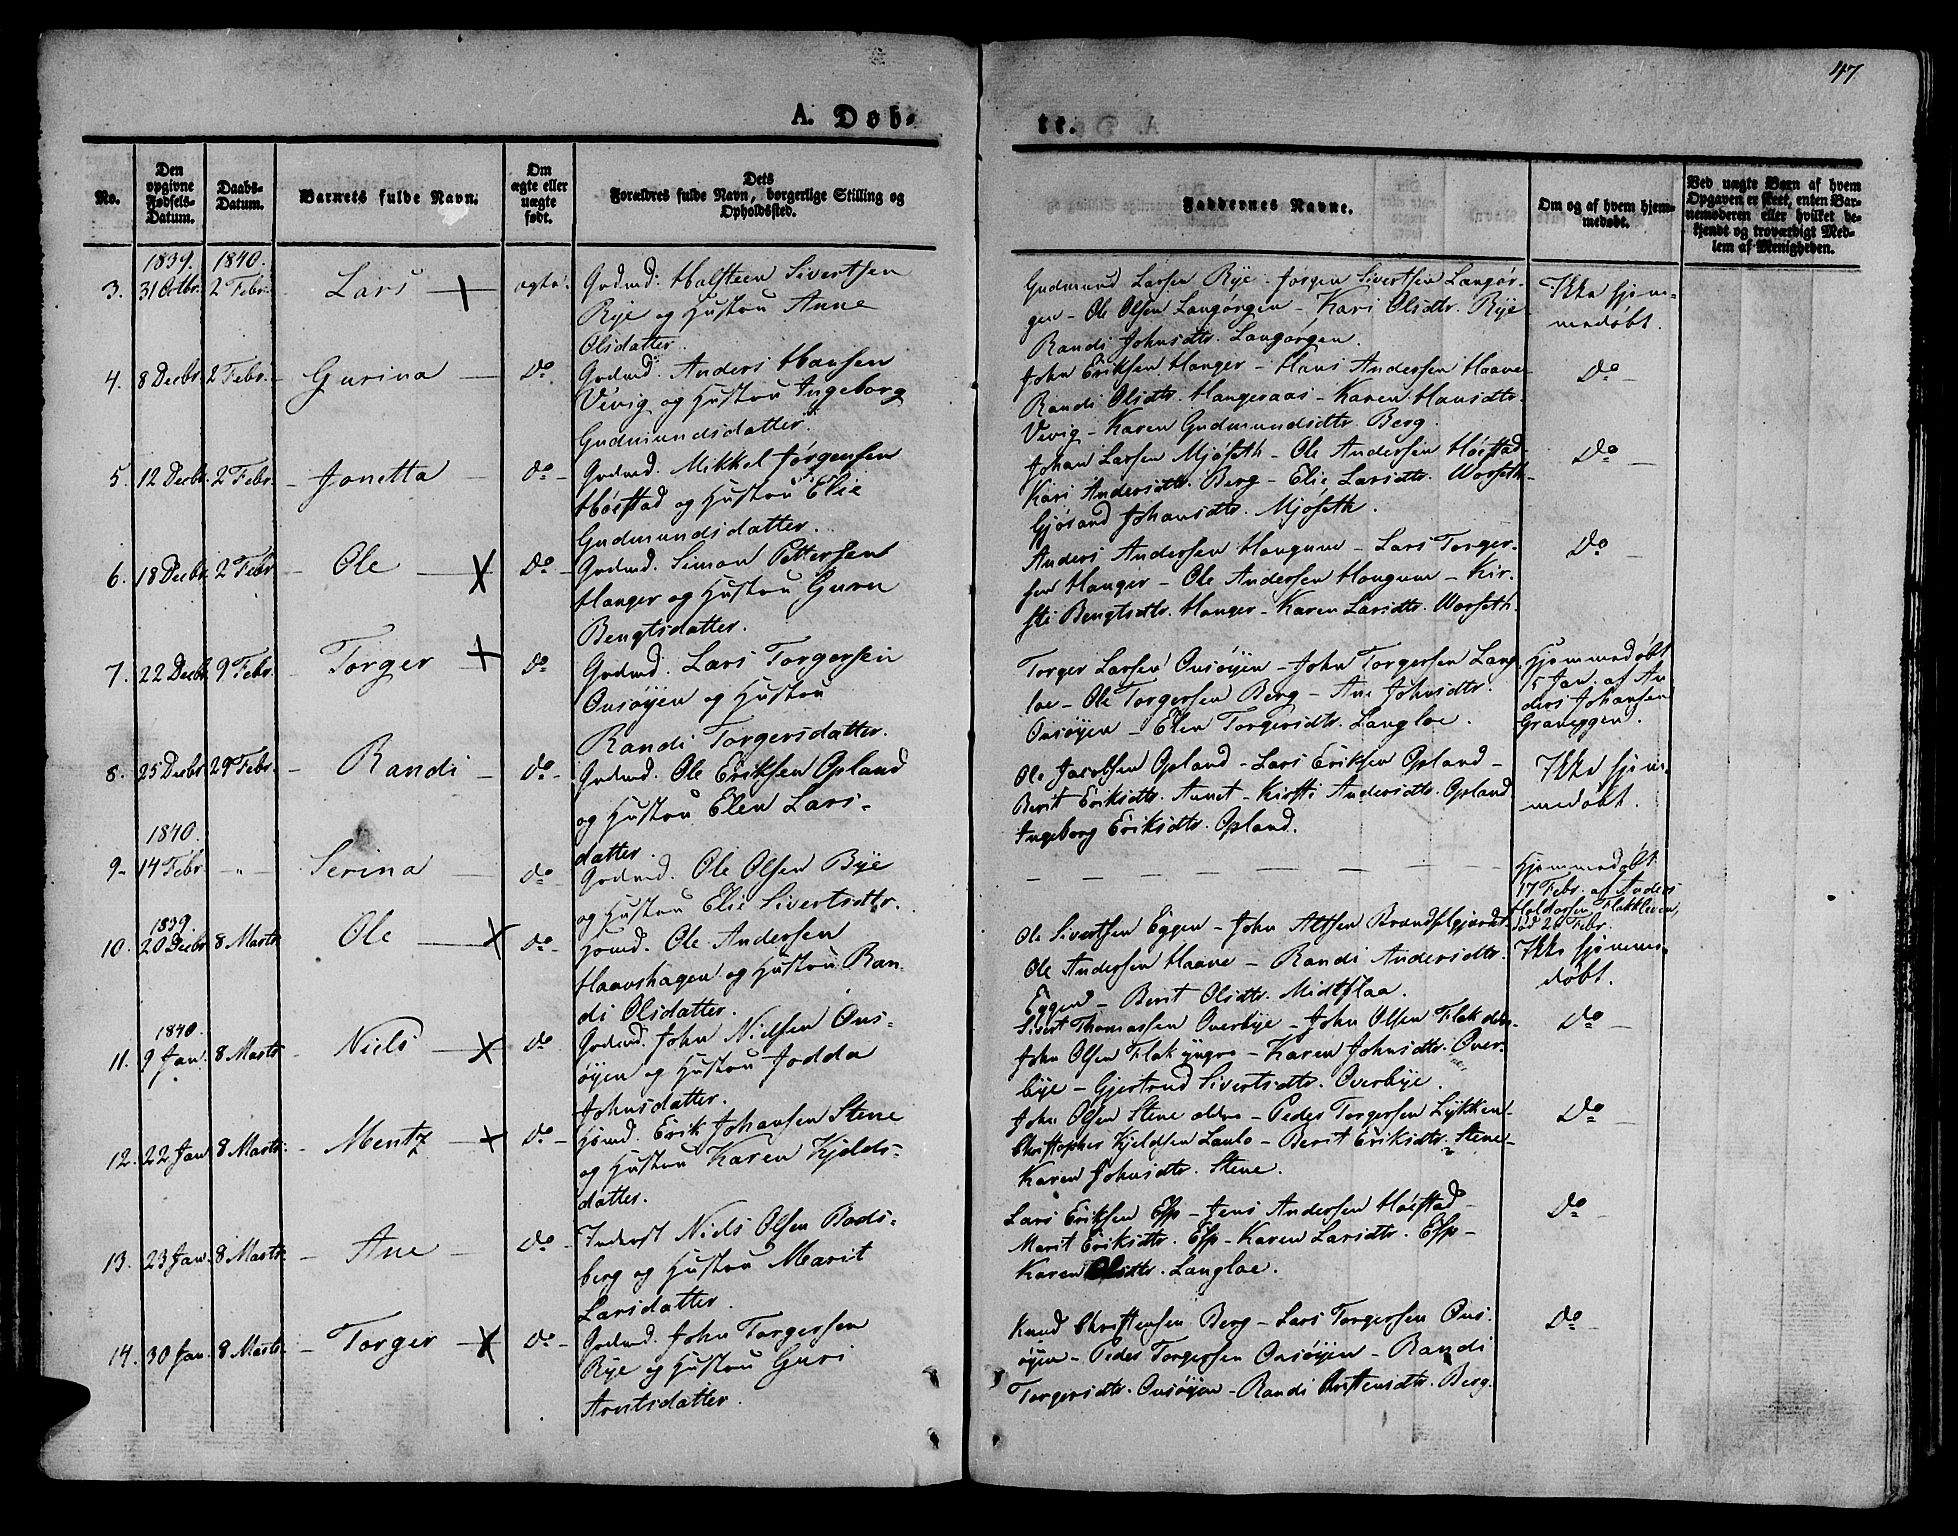 47
A. Døb-
te.
No.
Den opgivne Fødsels-Datum.
Daabs-Datum.
Barnets fulde Navn.
Om ægte eller uægte født.
Dets Forældres fulde Navn, borgerlige Stilling og Opholdssted.
Faddernes Navne.
Om og af hvem hjem-medøbt.
Ved uægte Barn af hvem Opgaven er skeet, enten Bar-nemoderen eller hvilket be-kjendt og troværdigt Med-lem af Menigheden.
1839. 1840.
3. 31 Octbr. 2 Febr. Lars ægte.
Grdmd. Halsteen Sivertsen
Rye og Hustru Anne
Olsdatter.
Gudmund Larsen Rye - Jørgen Sivertsen Langør-
gen - Ole Olsen Langørgen - Kari Olsdtr. Rye
Randi Johnsdtr. Langørgen.
Ikke hjem-
medøbt.
4. 8 Decbr. 2 Febr. - Gurina - do
Grdmd. Anders Hansen
Vevig og Hustru Ingeborg
Gudmundsdatter.
John Eriksen Hanger - Hans Andersen Haave
Randi Olsdtr. Hangeraas - Karen Hansdtr.
Vevig - Karen Gudmundsdtr. Berg.
do -
5. 12 Decbr. 2 Febr. - Jonetta - do
Grdmd. Mikkel Jørgensen
Høistad og Hustru Elie
Gudmundsdatter.
Johan Larsen Mjøseth - Ole Andersen Høistad
Kari Andersdtr. Berg - Elie Larsdtr. Worseth
Gjørand Johansdtr. Mjøseth.
do -
6. 18 Decbr. 2 Febr - Ole - do -
Grdmd. Simon Pettersen
Hanger og Hustru Guru
Bengtsdatter.
Anders Andersen Hougum - Lars Torger-
sen Hanger - Ole Andersen Hougum - Kir-
sti Bengtsdtr. Hanger - Karen Larsdtr. Worseth.
do -
7. 22 Decbr. 9 Febr. Torger do
Grdmd. Lars Torgersen
Onsøyen og Hustru
Randi Torgersdatter.
Torger Larsen Onsøyen - John Torgersen Lang-
loe - Ole Torgersen Berg - Ane Johnsdtr.
Onsøyen - Elen Torgersdtr. Langloe.
Hjemmedøbt
5 Jan. af An
ders Johansen
Graneggen.
8. 25 Decbr. 29 Febr. - Randi - do -
Grdmd. Ole Eriksen Opland
og Hustru Elen Lars-
datter.
Ole Jacobsen Opland - Lars Eriksen Opland -
Berit Eriksdtr. Aunet - Kirsti Andersdtr. Opland
Ingeborg Eriksdtr. Opland.
Ikke hjem-
medøbt.
1840.
9 - 14 Febr. - " - Serina - do -
Grdmd. Ole Olsen Bye
og Hustru Elie Sivertsdtr.
Hjemmedøbt
17 Febr. af Anders
Haldorsen Flakkleven,
død 20 Febr.
1839.
10. 20 Decbr. 8 Marts Ole - do -
Hsmd. Ole Andersen
Haavshagen og Hustru Ran-
di Olsdatter.
Ole Sivertsen Eggen - John Altsen
Ole Andersen Haave - Randi Andersdtr.
Eggen - Berit Olsdtr. Midtflaa.
Ikke hjemme-
døbt.
1840.
11. 9 Jan. 8 Marts - Niels - do
Grdmd. John Nielsen Ons-
øyen og Hustru Jodda
Johnsdatter.
Sivert Thomassen Overbye - John Olsen Flak
John Olsen Flak yngre - Karen Johnsdtr. Over-
bye - Gjertrud Sivertsdtr. Overbye.
do -
12. 22 Jan 8 Marts - Mentz - do -
Hsmd. Erik Johansen Stene
og Hustru Karen Kjelds-
datter.
John Olsen Stene ældre - Peder Torgersen Lykken
Christopher Kjeldsen Laulo - Berit Eriksdtr. Stene -
Karen Johnsdtr. Stene.
do -
13. 23 Jan. 8 Marts - Ane - do -
Inderst Niels Olsen Rods-
berg og Hustru Marit
Larsdatter.
Lars Eriksen Esp - Jens Andersen Høistad -
Marit Eriksdtr. Esp - Karen Larsdtr. Esp -
Karen Olsdtr. Langloe.
do -
14. 30 Jan. 8 Marts - Torger - do -
Grdmd. John Torgersen
Rye og Hustru Guri
Arntsdatter.
Knud Christensen Berg - Lars Torgersen Ons-
øyen - Peder Torgersen Onsøyen - Randi
Torgersdtr. Onsøyen - Randi Christensdtr. Berg.
do -